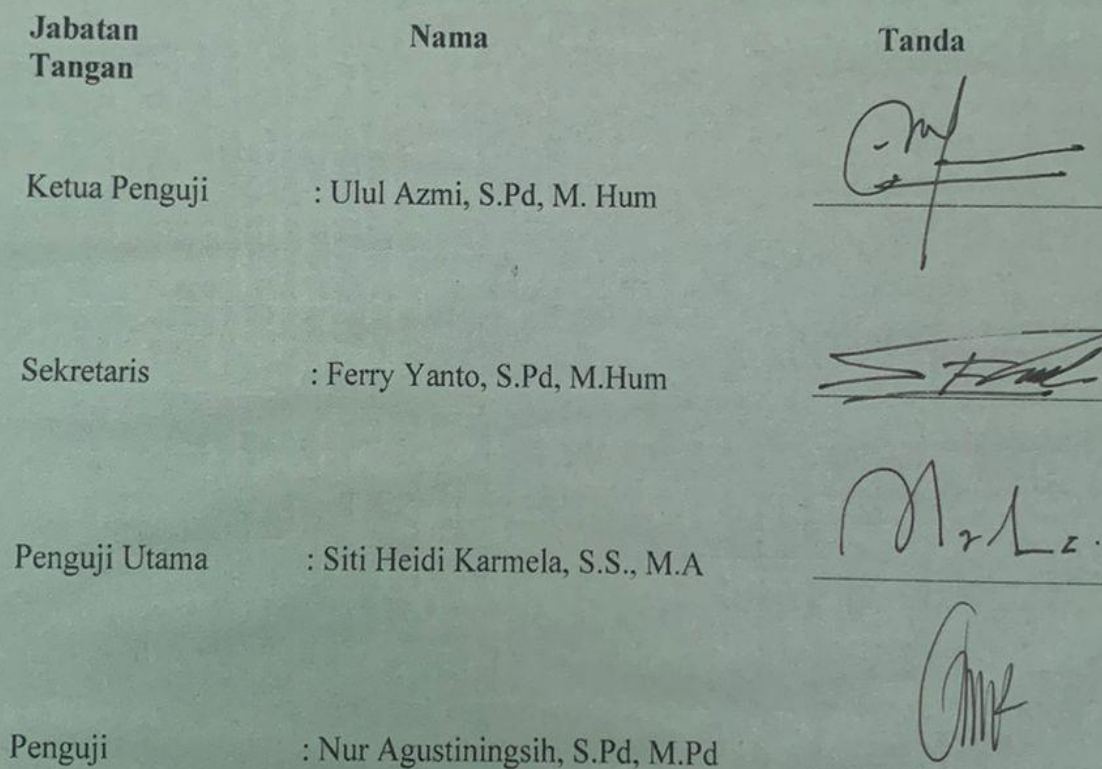 Jabatan Nama Tanda
Tangan
Ketua Penguji : Ulul Azmi, S.Pd, M. Hum
Sekretaris : Ferry Yanto, S.Pd, M.Hum
Penguji Utama : Siti Heidi Karmela, S.S., M.A
Penguji : Nur Agustiningsih, S.Pd, M.Pd